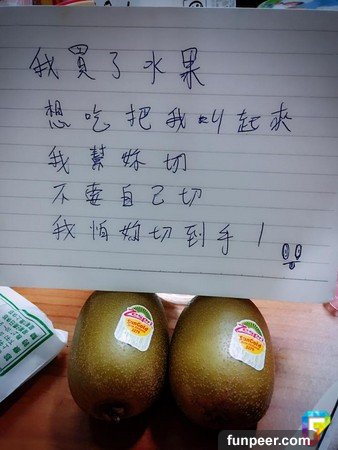 我買了水果
想吃把我叫起來
我幫妳切
不要自己切
我怕妳切到手！
Zespri
SUNGOLD
Zespri
SUNGOLD
funpeer.com